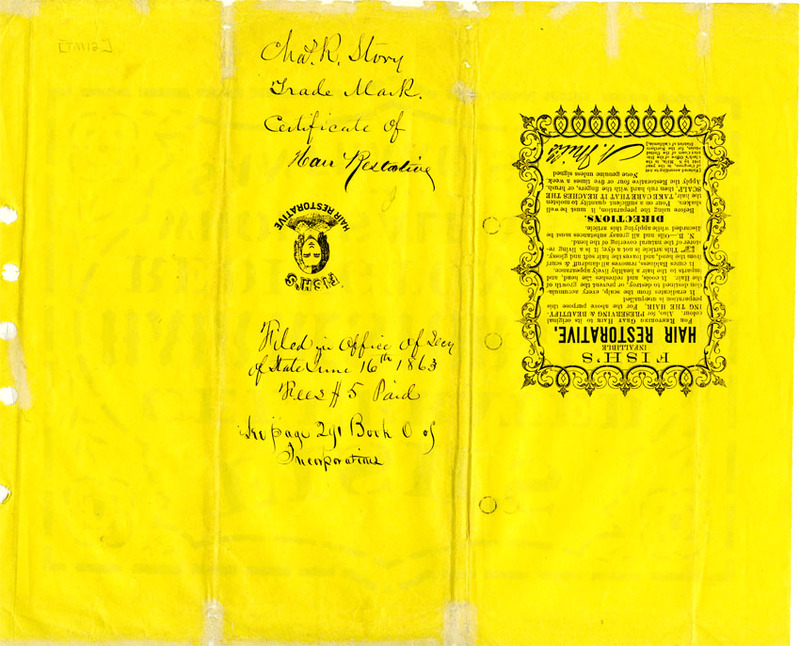 [TM12]
Chas. R. Story
Trade Mark.
Certificate of
Hair Restorative
FISH'S
HAIR RESTORATIVE
Filed in Office of Secy
of State June 16th 1863
Fees $5 Paid
See page 291 Book O of
Incorporations
FISH'S
INFALLIBLE
HAIR RESTORATIVE.
FOR RESTORING GRAY HAIR to its original
colour. Also, for PRESERVING & BEAUTIFY-
ING THE HAIR. For the above purpose this
preparation is unequalled
It eradicates from the scalp, every accumula-
tion destined to destroy, or prevent the growth of
the Hair. It cools, and refreshes the head, and
imparts to the hair a healthy lively appearance.
It cures Baldness, removes all dandruff & scurf
from the head, and leaves the hair soft and glossy.
This article is not a dye; it is a living re-
storer of the natural covering of the head.
N. B.—Oils and all greasy substances must be
discarded while applying this article.
DIRECTIONS.
Before using the preparation, it must be well
shaken. Pour on a sufficient quantity to moisten
the hair, TAKE CARE THAT IT REACHES THE
SCALP, then rub hard with the fingers, or brush.
Apply the Restorative four or five times a week
None genuine unless signed
Entered according to Act
of Congress, in the year
1862 by N. Mills, in the
Clerk's Office of the Dis-
trict Court of the United
States, for the Northern
District of California.
N. Mills